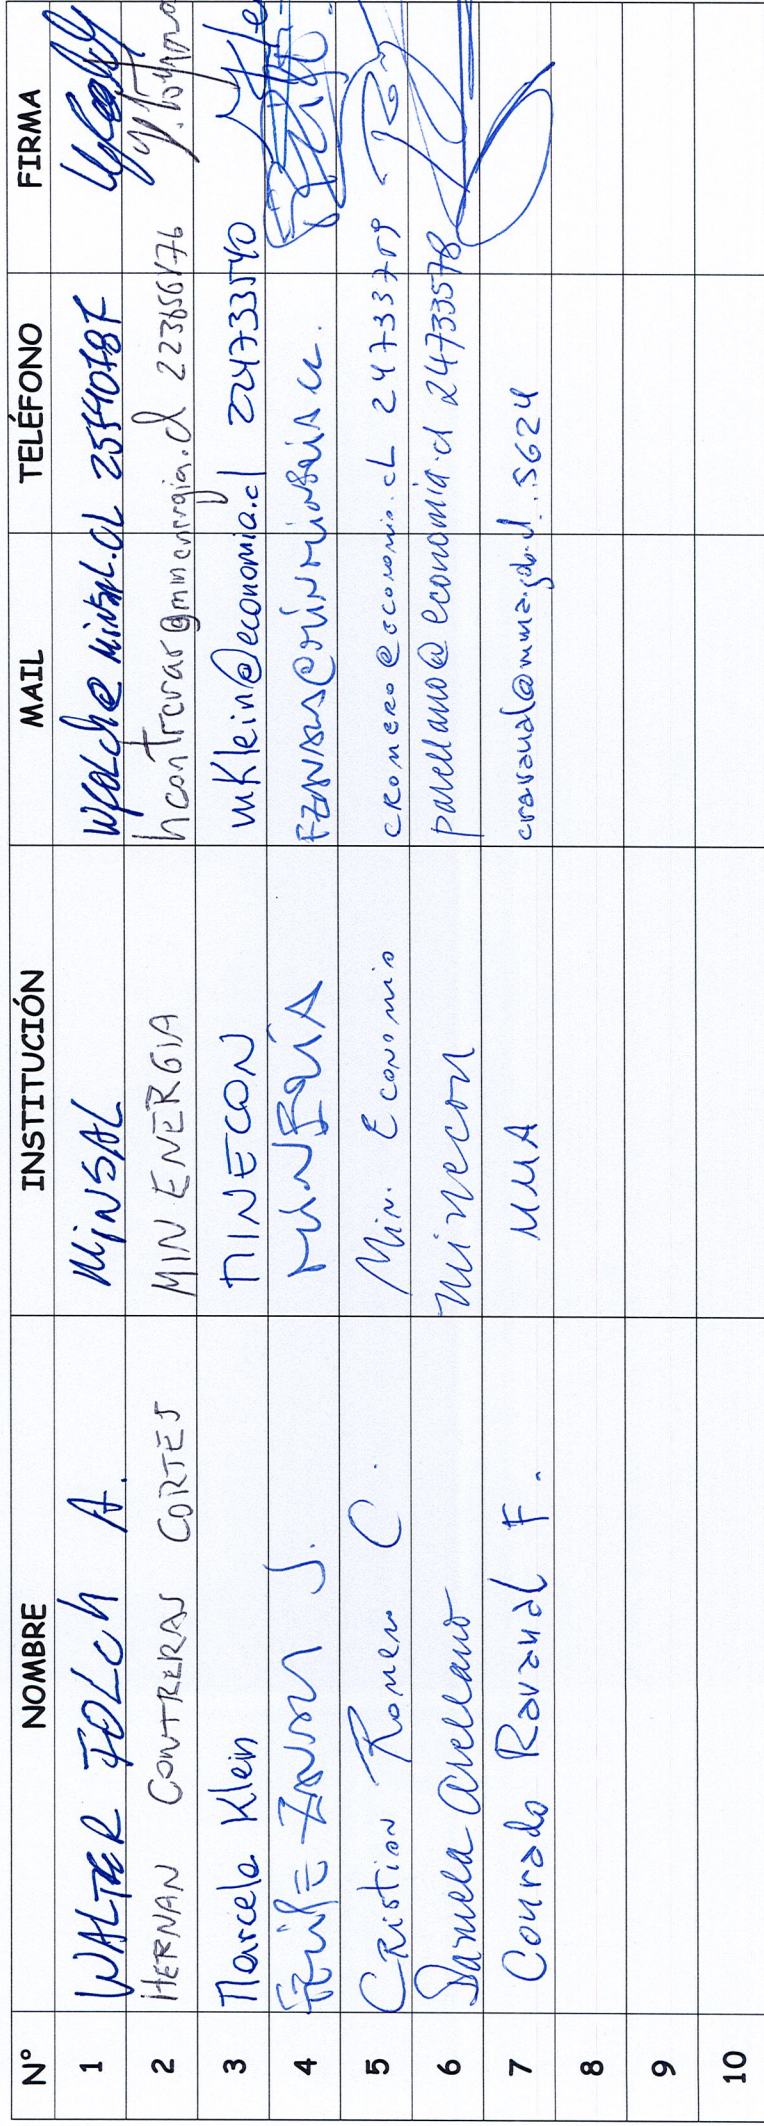 N° NOMBRE INSTITUCIÓN MAIL TELÉFONO FIRMA
1 WALTER FOLCH A. MINSAL WFOLCH@MINSAL.CL 25740787
2 HERNAN CONTRERAS CORTES MIN ENERGIA hcontreras@minenergia.cl 223656876
3 Marcela Klein MINECON mklein@economia.cl 224733540
4 J.
5 Cristian Romero C. Min. Economia cromero@economia.cl 24733709
6 Daniela Arellano Minecon parellano@economia.cl 24733578
7 Conrado Ravanal F. MMA cravanal@mma.gob.cl 5624
8
9
10